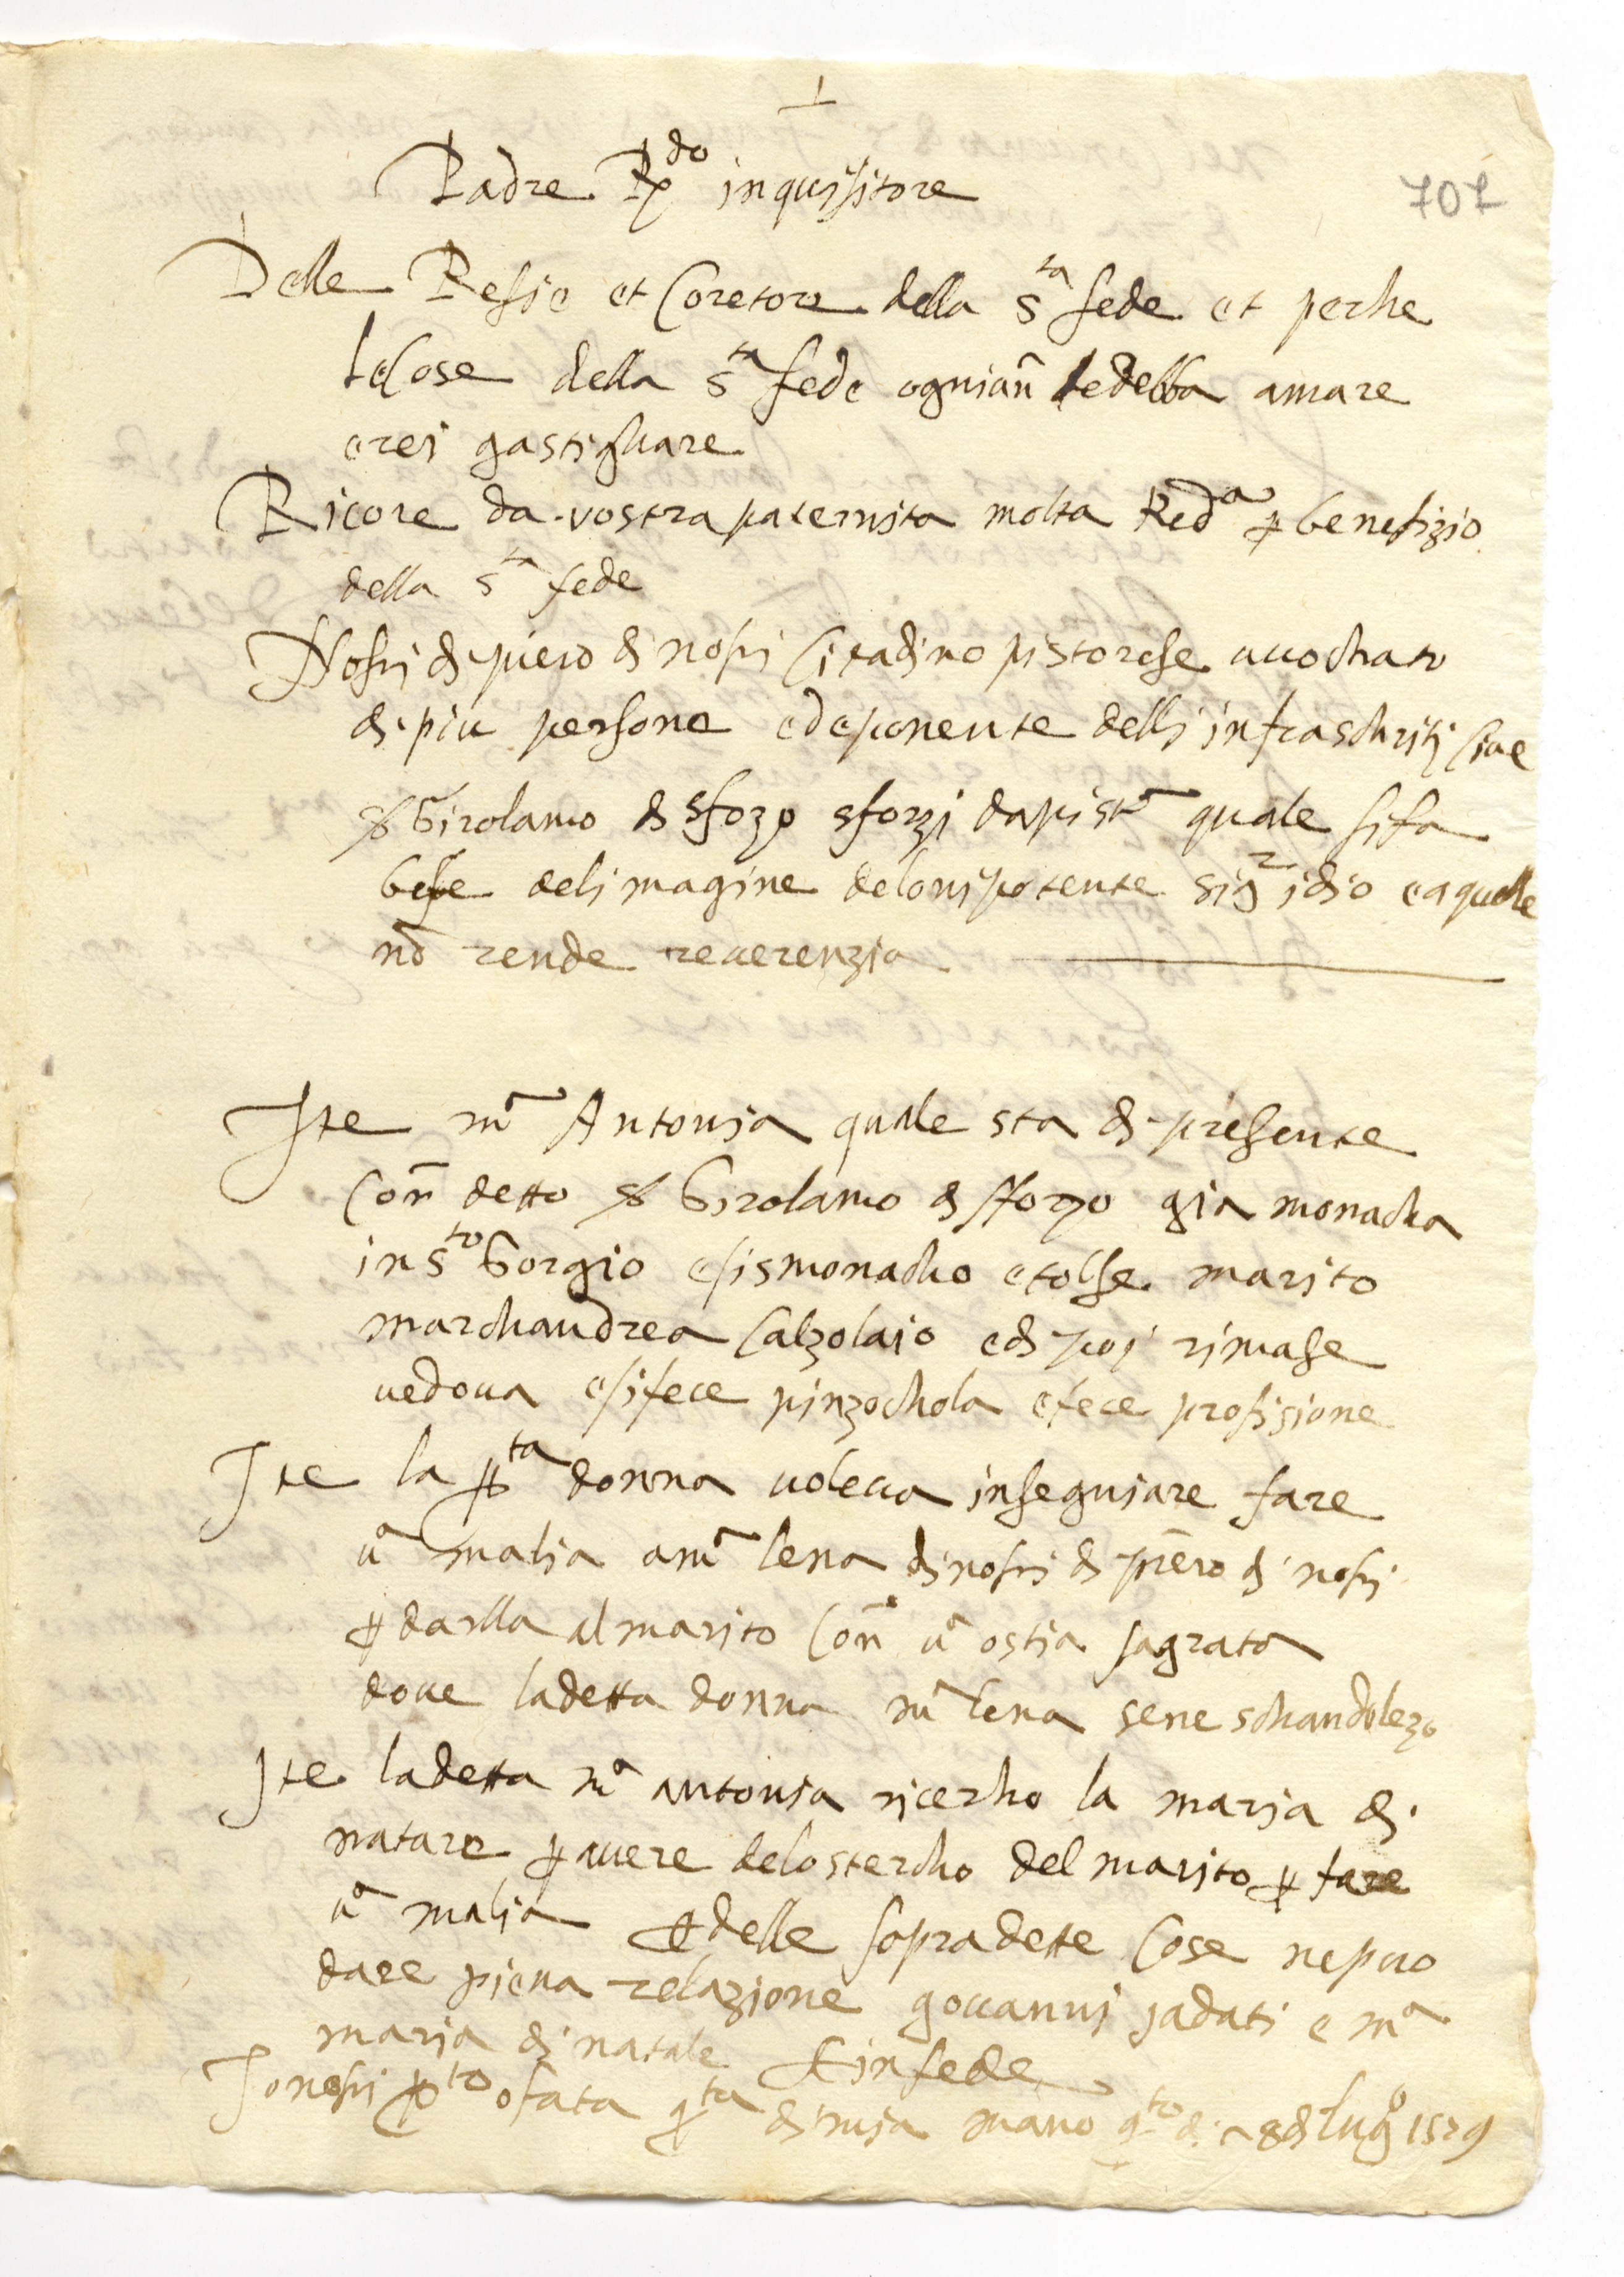 707
Padre Rdo inquisitore
Delle Resie et Coretore della sta fede et perche
le Cose della sta fede ognian le debba amare
e rei gastighare
Ricore da vostra paternita molta Reda p benefizio
della sta fede
Nofri di piero di nofri Citadino pistorese avochato
di piu persone e deponente delli infraschriti Cioe
s Girolamo di sforzo sforzi da pista quale si fa
befe del imagine del onipotente sigr idio e a quelle
nō rende reverenzia
Ite ma Antonia quale sta di presente
Con detto s Girolamo di sforzo gia monacha
in sto Gorgio e si smonacho e tolse marito
marchandrea Calzolaio e di poi rimase
vedova e si fece pinzochola e fece profisione
Ite la pta donna voleva insegniare fare
ua malia a ma lena di nofri di piero di nofri
p darlla al marito Con ua ostia sagrata
dove la detta donna ma lena sene schandolezo
Ite la detta ma antonia ricercho la maria di
natare p avere delo stercho del marito p fare
ua malia Et delle sopradette Cose ne puo
dare piena relazione govanni iadati e ma
maria di natale Et in fede
Io nofri pto o fata pta di mia mano qto di 28 di lugo 1579